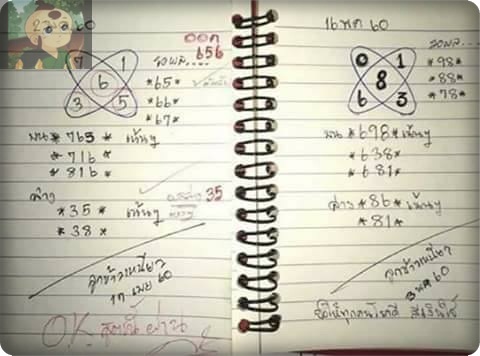 60
ออก
656
7 1
6
3 5
รอผล....
*65*
*66*
*67*
บน *765* เน้นๆ
*716*
*816*
ล่าง
*35* เน้นๆ
*38*
35
ลูกข้าวเหนียว
17 เมย 60
O.K. สูตรนี้ ผ่าน
16 พค 60
0 1
8
6 3
รอผล....
*98*
*88*
*78*
บน *698* เน้นๆ
*638*
*681*
ล่าง *86* เน้นๆ
*81*
ลูกข้าวเหนียว
3 พค 60
ขอให้ทุกคนโชคดี